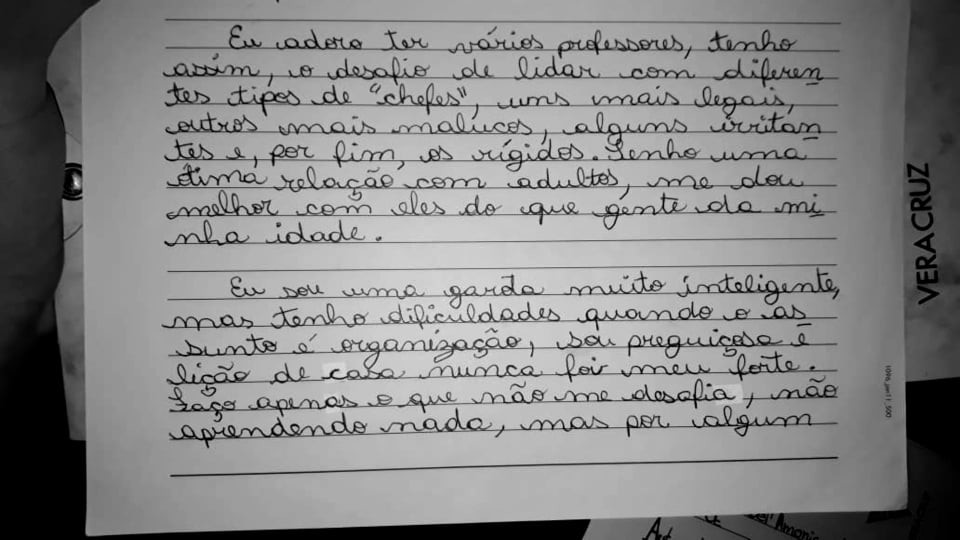 Eu adoro ter vários professores, tenho
assim, o desafio de lidar com diferen
tes tipos de "chefes", uns mais legais,
outros mais malucos, alguns irritan
tes e, por fim, os rígidos. Tenho uma
ótima relação com adultos, me dou
melhor com eles do que gente da mi
nha idade.
Eu sou uma garota muito inteligente,
mas tenho dificuldades quando o as
sunto é organização, sou preguiçosa e
lição de casa nunca foi meu forte.
Faço apenas o que não me desafia, não
aprendendo nada, mas por algum
VERA CRUZ